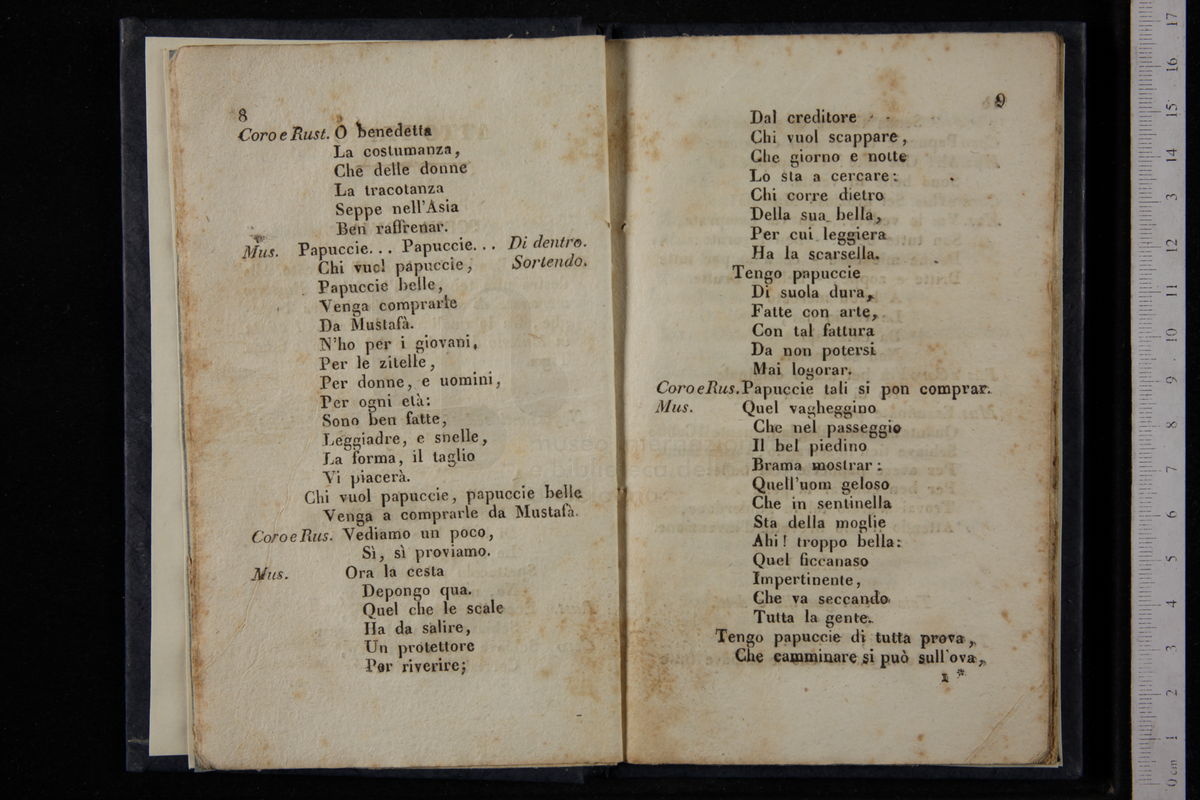 8
Coro e Rust. O benedetta
La costumanza,
Che delle donne
La tracotanza
Seppe nell'Asia
Ben raffrenar.
Mus. Papuccie. . . Papuccie. . . Di dentro.
Chi vuol papuccie, Sortendo.
Papuccie belle,
Venga comprarle
Da Mustafà.
N'ho per i giovani,
Per le zitelle,
Per donne, e uomini,
Per ogni età:
Sono ben fatte,
Leggiadre, e snelle,
La forma, il taglio
Vi piacerà.
Chi vuol papuccie, papuccie belle
Venga a comprarle da Mustafà.
Coro e Rus. Vediamo un poco,
Sì, sì proviamo.
Mus. Ora la cesta
Depongo qua.
Quel che le scale
Ha da salire,
Un protettore
Per riverire;
9
Dal creditore
Chi vuol scappare,
Che giorno e notte
Lo sta a cercare:
Chi corre dietro
Della sua bella,
Per cui leggiera
Ha la scarsella.
Tengo papuccie
Di suola dura,
Fatte con arte,
Con tal fattura
Da non potersi
Mai logorar.
Coro e Rus. Papuccie tali si pon comprar.
Mus. Quel vagheggino
Che nel passeggio
Il bel piedino
Brama mostrar:
Quell'uom geloso
Che in sentinella
Sta della moglie
Ahi! troppo bella:
Quel ficcanaso
Impertinente,
Che va seccando
Tutta la gente.
Tengo papuccie di tutta prova,
Che camminare si può sull'ova,
1 *
0 cm 1 2 3 4 5 6 7 8 9 10 11 12 13 14 15 16 17